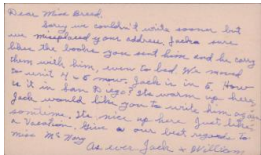 Dear Miss Breed,
Sorry we couldn't write sooner but
we misplaced your address. Jack sure
likes the books you sent him and he carry
them with him, even to bed. We moved
to unit 4 & 6 now. Jack is in 5. How
is it in San Diego? Its warm up here.
Jack would like you to write him again
sometime. Its nice up here just like
a vacation. Give our best regards to
Miss Mc Nary
As ever Jack & William